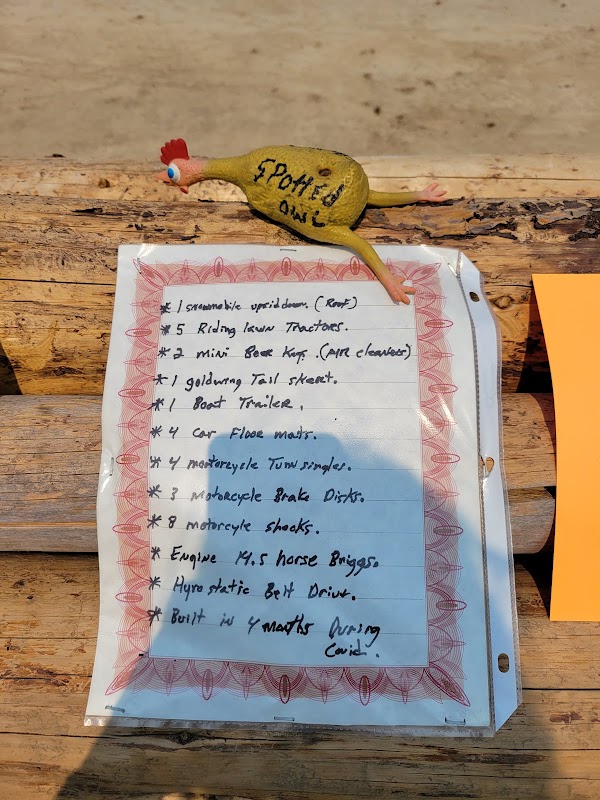 SPOTTED
OWL
* 1 snowmobile upsiddown. (Roof)
* 5 Riding lawn Tractors.
* 2 mini Beer Kegs. (AIR cleaners)
* 1 goldwing Tail skert.
* 1 Boat Trailer.
* 4 Car Floor mats.
* 4 mortorcycle Turn singles.
* 3 Motorcycle Brake Disks.
* 8 motorcyle shocks.
* Engine 19.5 horse Briggs.
* Hyrostatic Belt Drive.
* Built in 4 months During
Covid.